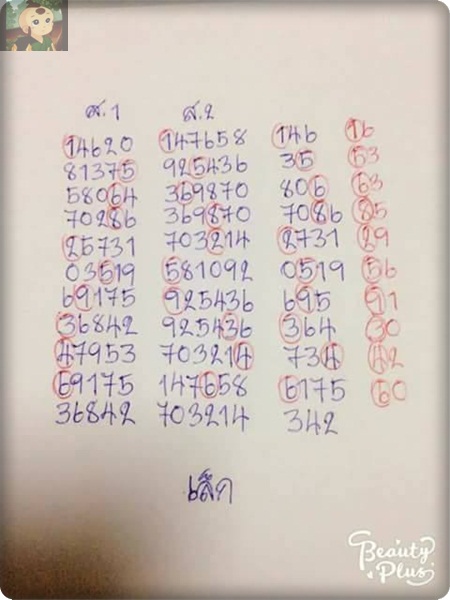 ส.1 ส.2
14620 147658 146 16
81375 925436 35 53
58064 369870 806 63
70286 369870 7086 85
25731 703214 2731 29
03519 581092 0519 56
69175 925436 695 91
36842 925436 364 30
47953 703214 734 42
69175 147658 6175 60
36842 703214 342
เล็ก
Beauty
Plus